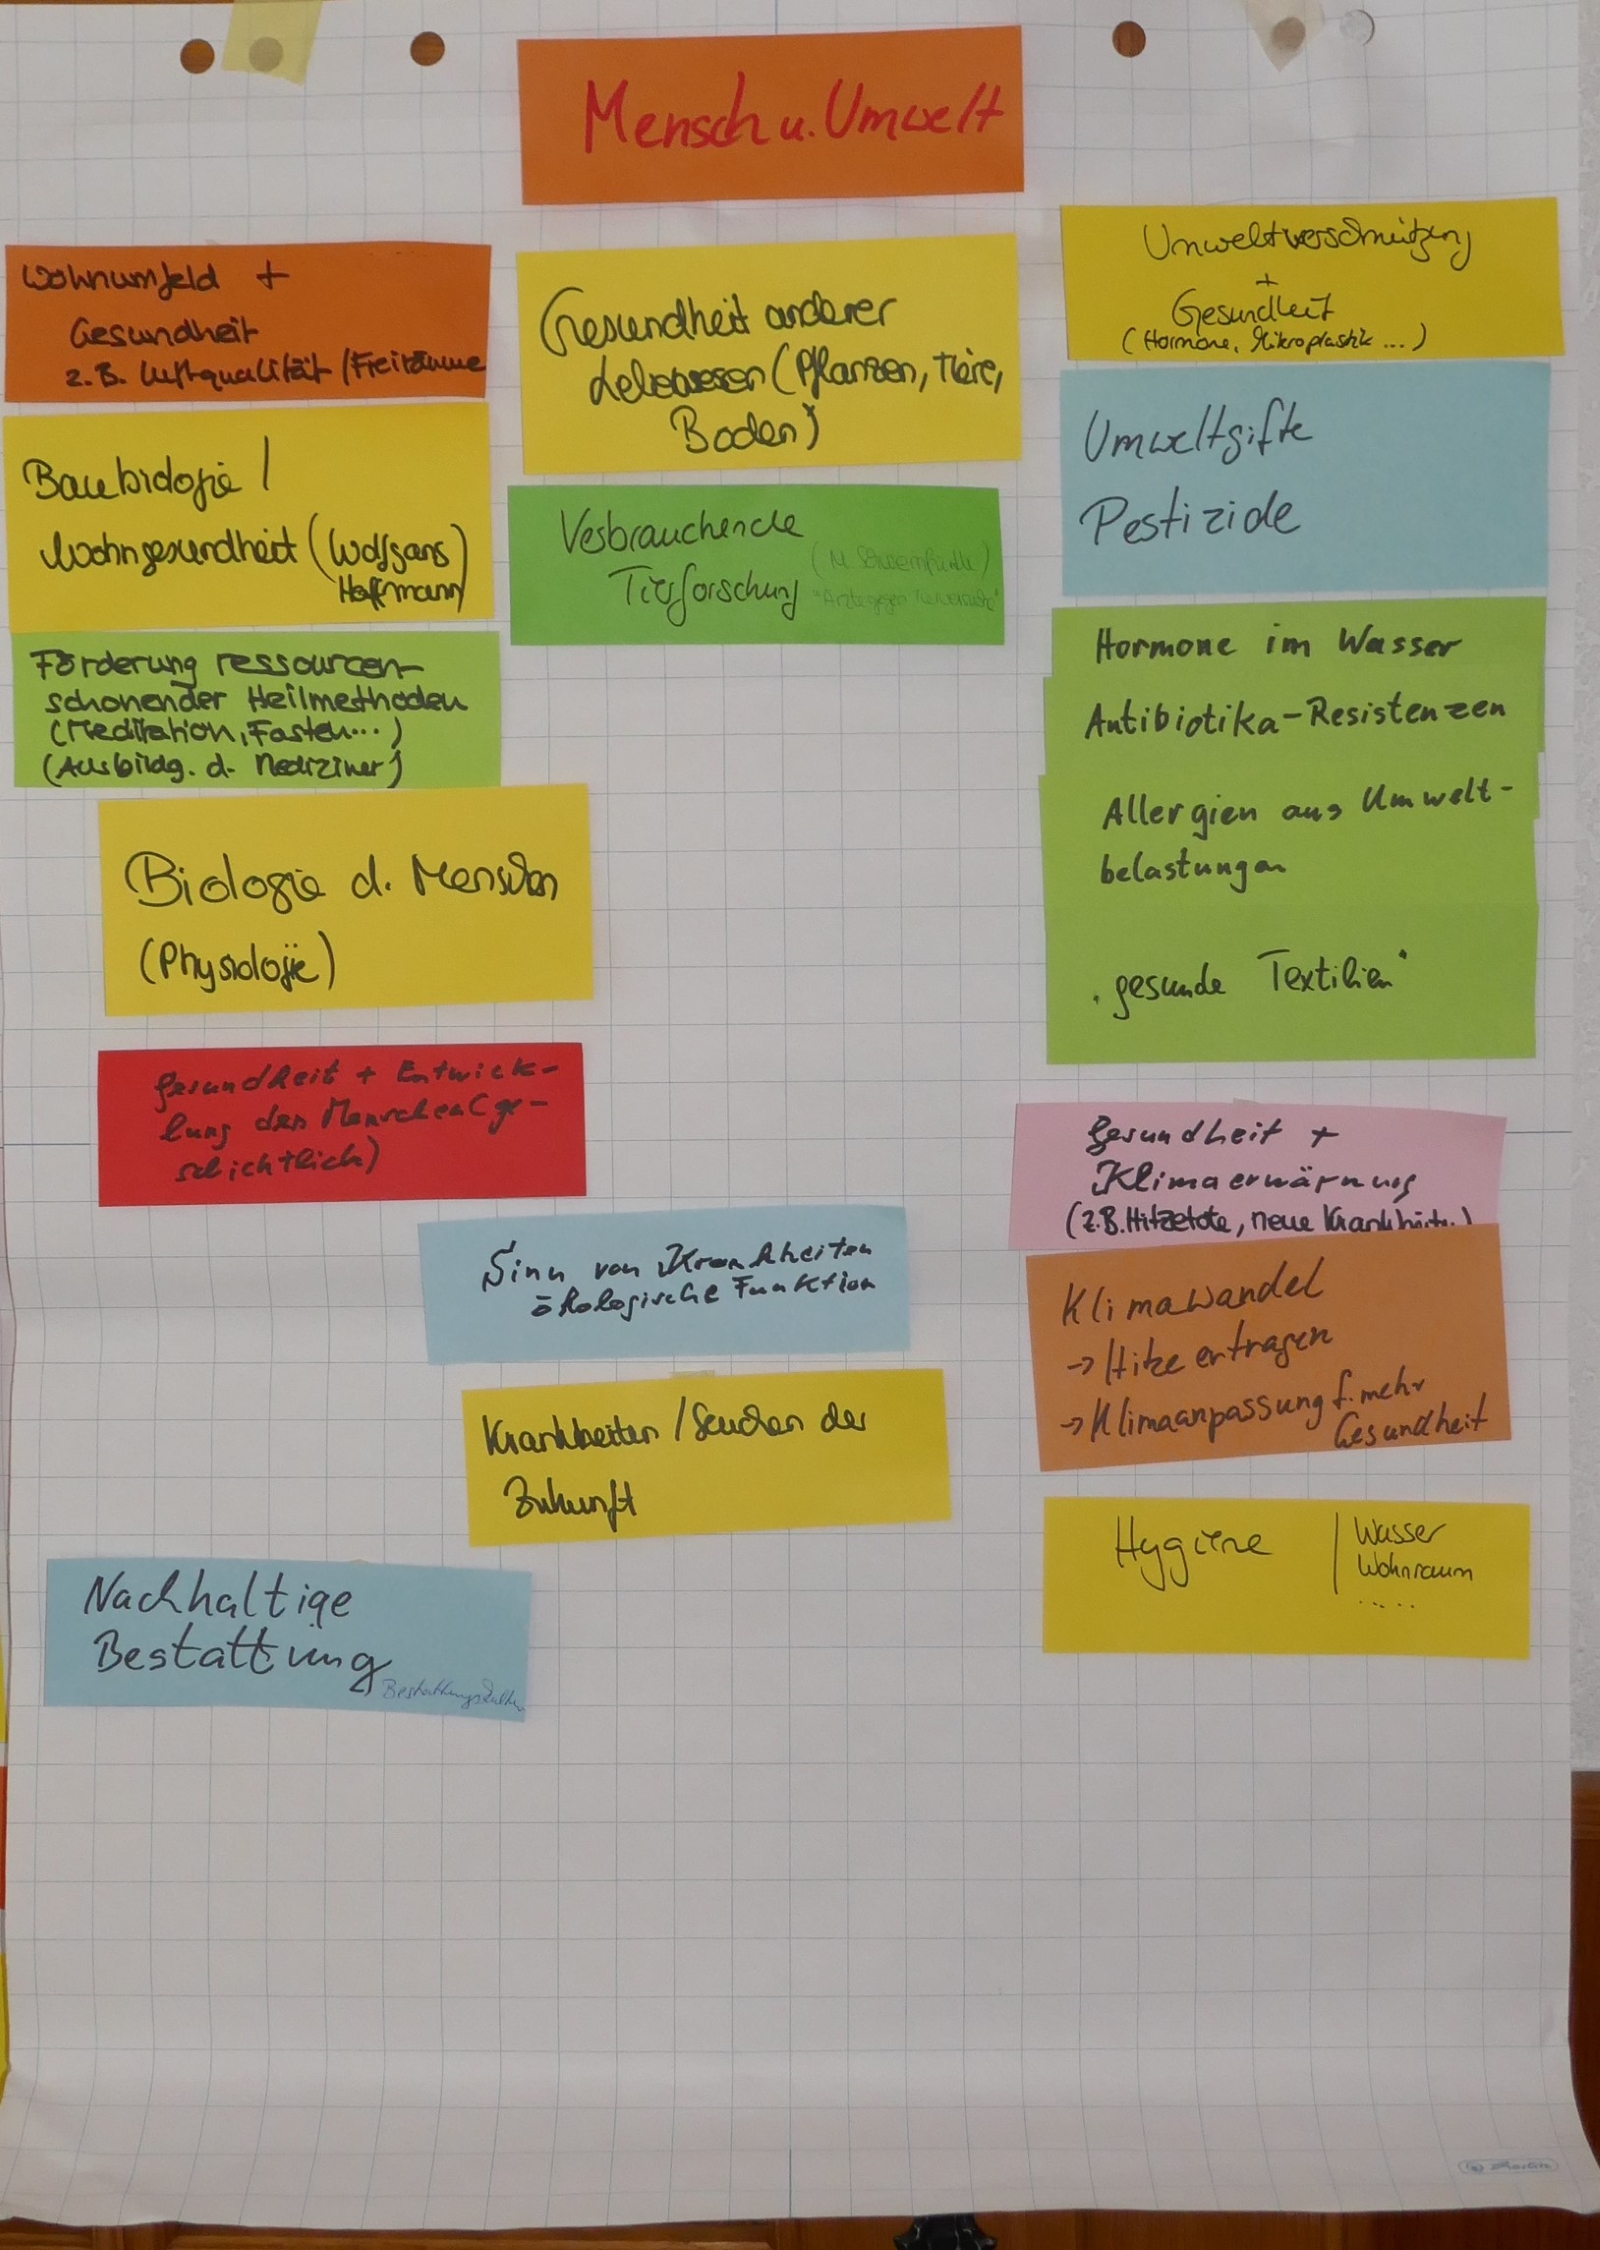 Mensch u. Umwelt
Wohnumfeld +
Gesundheit
z.B. Luftqualität / Freiräume
Baubiologie /
Wohngesundheit (Wolfgang
Hoffmann)
Förderung ressourcen-
schonender Heilmethoden
(Meditation, Fasten...)
(Ausbildg. d. Mediziner)
Biologie d. Menschen
(Physiologie)
Gesundheit + Entwick-
lung des Menschen (ge-
schichtlich)
Gesundheit anderer
Lebewesen (Pflanzen, Tiere,
Boden)
Verbrauchende
Tierforschung
"Ärzte gegen Tierversuche"
Sinn von Krankheiten
ökologische Funktion
Krankheiten / Seuchen der
Zukunft
Nachhaltige
Bestattung
Bestattungskultur
Umweltverschmutzung
+
Gesundheit
(Hormone, Mikroplastik ...)
Umweltgifte
Pestizide
Hormone im Wasser
Antibiotika-Resistenzen
Allergien aus Umwelt-
belastungen
"gesunde Textilien"
Gesundheit +
Klimaerwärmung
(z.B. Hitzetote, neue Krankheiten)
Klimawandel
→ Hitze ertragen
→ Klimaanpassung f. mehr
Gesundheit
Hygiene | Wasser
Wohnraum
.....